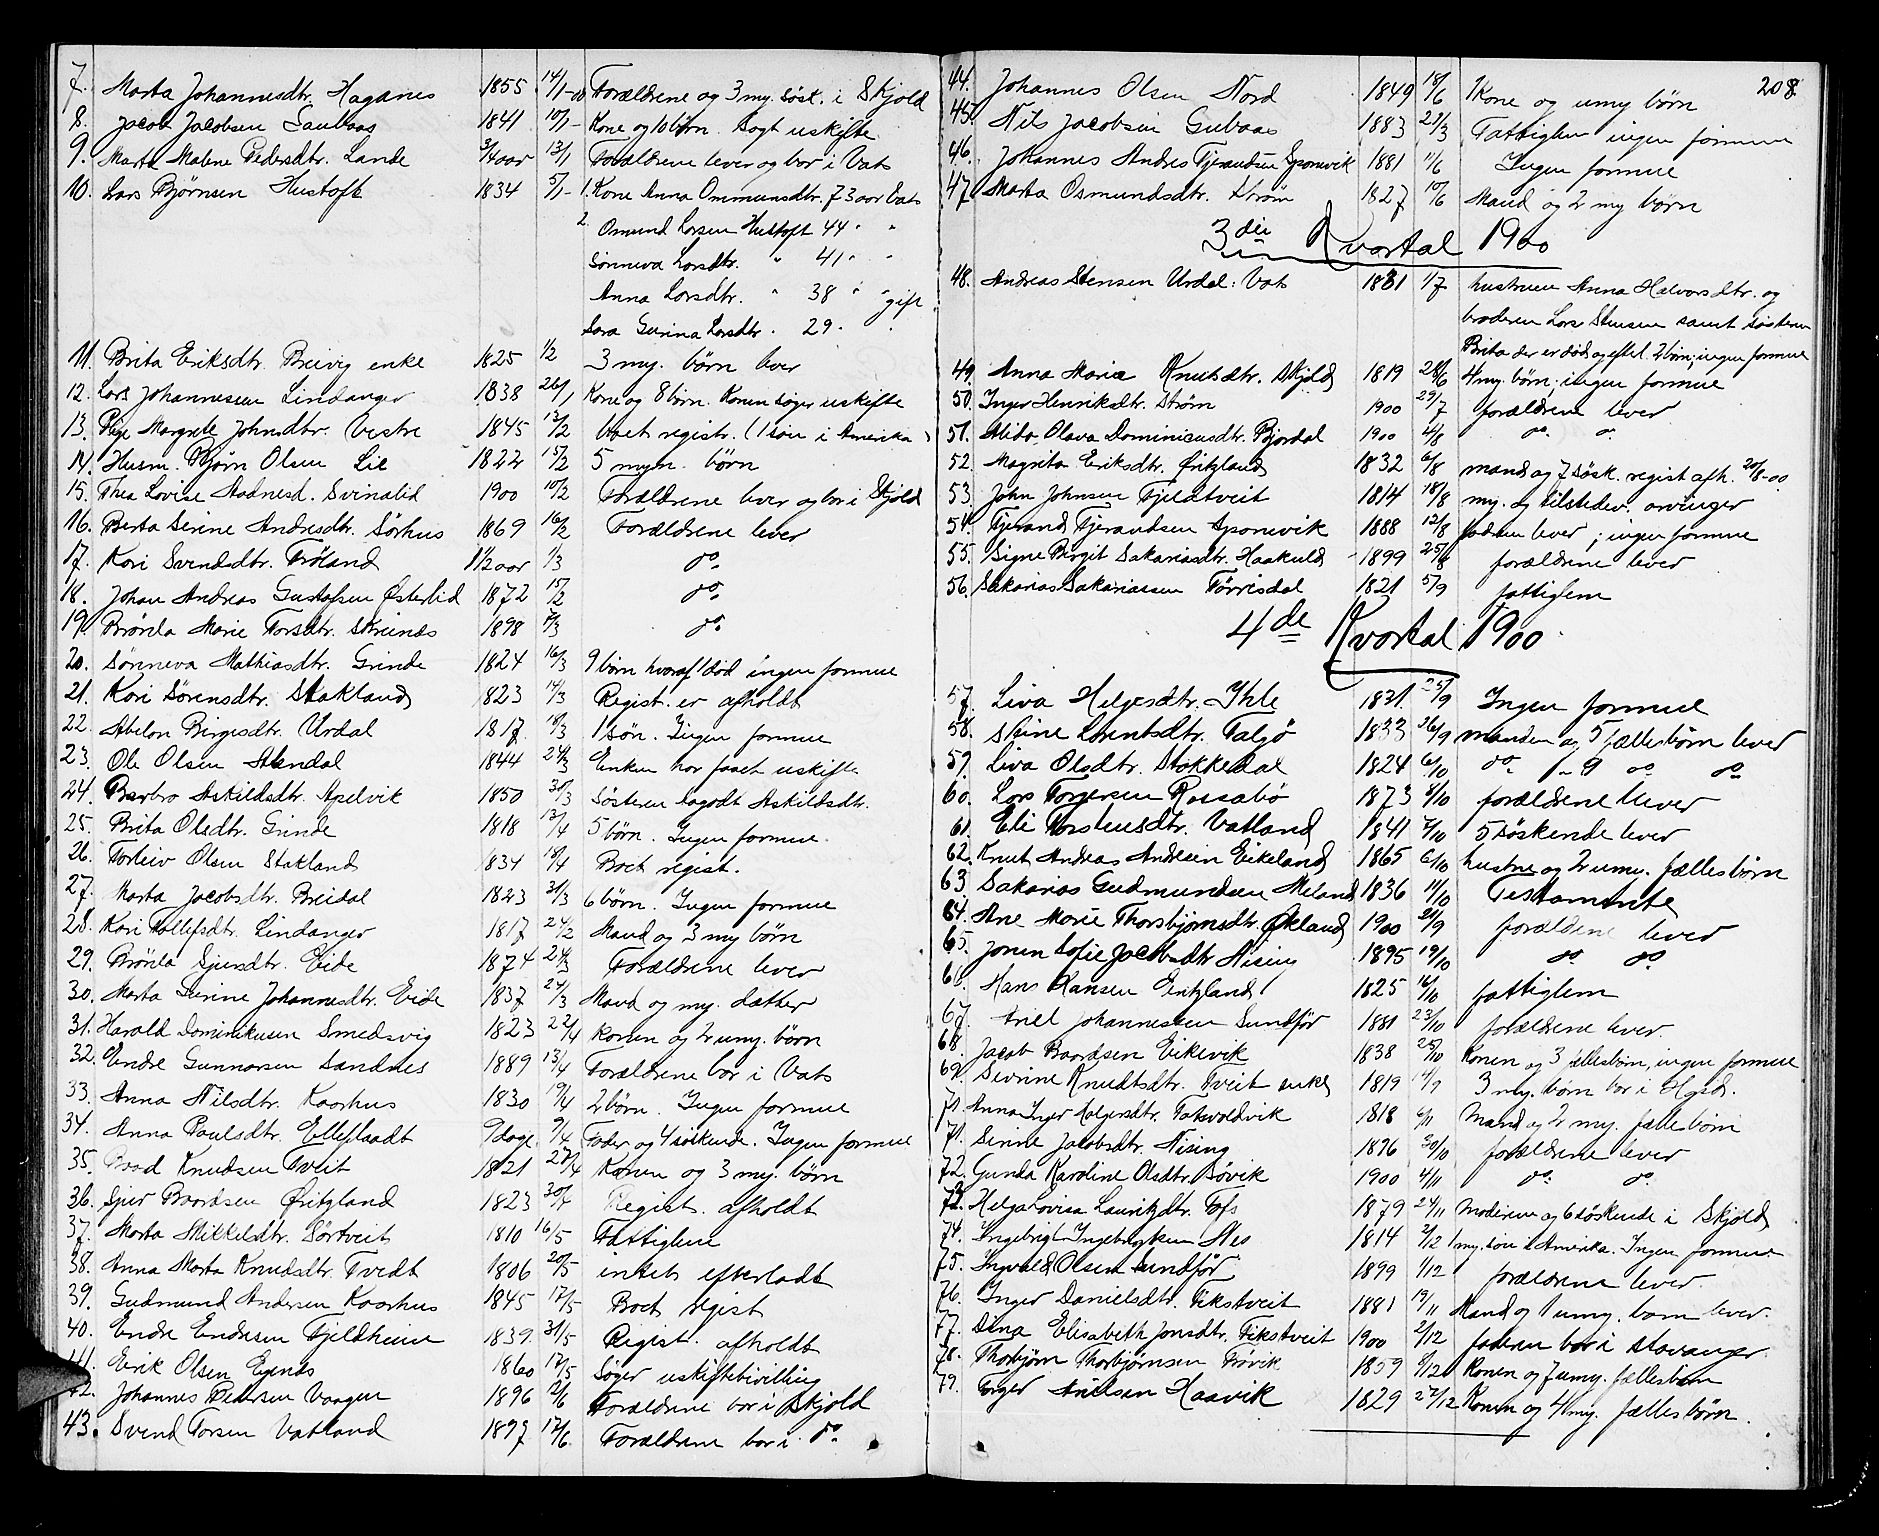 7. Marta Johannesdtr. Haganes 1855 14/1-00 Forældrene og 3 my. søsk. i Skjold
8. Jacob Jacobsen 1841 10/1 - Kone og 10 børn. Søgt uskifte
9. Marta Malene Pedersdtr. Lande 3/4 aar 13/1 Forældrene lever og bor i Vats
10. Lars Bjørnsen Hustoft 1834 5/1 - 1. Kone Anna Ommunsdtr. 73 aar Vats
2. Osmund Larsen Hustoft 44 " "
Sønneva Larsdtr. " 41 " "
Anna Larsdtr. " 38 " " gift
Sara Gurina Larsdtr. 29 "
11. Brita Eriksdtr. Breivig enke 1825 1/2 3 my. børn lever
12. Lars Johannesen Lindanger 1838 26/1 Kone og 8 børn. Konen søger uskifte
13. Margrete Johnsdtr. Vestre 1845 13/2 boet registr. (1 søn i Amerika)
14. Husm. Bjørn Olsen Lie 1822 15/2 5 myn. børn
15. Thea Lovise Svinalid 1900 10/2 Forældrene lever og bor i Skjold
16. Berta Serine Andresdtr. Sørhus 1869 16/2 Forældrene lever
17. Kari Svendsdtr. Frøland 1 1/2 aar 1/3 do.
18. Johan Andreas Gustafsen Østerlid 1872 15/2 do.
19. Brønla Marie Torsdtr. Skreinæs 1898 7/3 do.
20. Sønneva Mathiasdtr. Grinde 1824 16/3 9 børn hvoraf 1 død ingen formue
21. Kari Sørensdtr. Stakland 1823 14/3 Regist. er afholdt
22. Abelon Birgesdtr. Urdal 1817 18/3 1 søn. Ingen formue
23. Ole Olsen Stendal 1844 24/3 Enken har faaet uskifte
24. Barbro Askildsdtr. Apelvik 1850 30/3 Søsteren Askildsdtr.
25. Brita Olsdtr. Grinde 1818 13/4 5 børn. Ingen formue.
26. Torleiv Olsen Stakland 1834 18/4 Boet regist.
27. Marta Jacobsdtr. Breidal 1823 31/3 6 børn. Ingen formue
28. Kari Tollefsdtr. Lindanger 1817 24/2 Mand og 3 my børn
29. Brønla Sjursdtr. Eide 1874 24/3 Forældrene lever
30. Marta Serine Johannesdtr. Eide 1837 24/3 Mand og my. datter
31. Harald Dominikusen Smedsvig 1823 22/4 Konen og 2 umy. børn
32. Endre Gunnarsen Sandnes 1889 13/4 Forældrene bor i Vats
33. Anna Nilsdtr. Kaarhus 1830 19/4 2 børn. Ingen formue
34. Anna Paulsdtr. Elleflaadt 9 dage 9/4 Fader og 4 søskende. Ingen formue
35. Baad Knudsen Tveit 1821 27/4 Konen og 3 my. børn
36. Sjur Baardsen Øritzland 1823 30/4 Regist. afholdt
37. Marta Mikkelsdtr. Sørtveit 1810 16/5 Fattiglem
38. Anna Marta Knudsdtr. Tvedt 1806 20/5 intet efterladt
39. Gudmund Andersen Kaarhus 1845 17/5 Boet regist
40. Endre Endresen Fjeldheim 1839. 31/5 Regist. afholdt
41. Eirik Olsen Egnæs 1860 12/5 Søger uskiftebevilling
42. Johannes Pedersen Vaagen 1896 12/6 Forældrene bor i Skjold
43. Svend Torsen Vatland 1897 12/6. Forældrene bor i do.
208
44. Johannes Olsen Nord 1849 18/6 Kone og umy børn
45. Nils Jacobsen Gubaas 1883 29/3 Fattiglem ingen formue
46. Johannes Andres Tjerandsen 1881 11/6 Ingen formue
47. Marta Osmundsdtr. Strøm 1827 10/6 Mand og 2 my børn
3die Kvartal 1900
48. Andreas Stensen Urdal: Vats 1831 1/7 hustruen Anna Halvorsdtr. og
broderen Lars Stensen samt søsteren
Brita der er død og efterl. 2 børn; ingen formue
49. Anna Maria Knutsdtr. Skjold 1819 28/6 4 my. børn. ingen formue
50. Inger Henriksdtr. Strøm 1900 29/7 forældrene lever
51. Olava Dominicusdtr. Bjordal 1900 4/8 do. do.
52. Magrita Eriksdtr. Øritzland 1832 6/8 mand og 7 søsk. regist afh. 20/8-00.
53. John Johnsen Fjeldtveit 1814 18/8 my. og tilstedev. arvinger
54. Tjerand Tjerandsen 1888 12/8 faderen lever; ingen formue
55. Signe Birgit Sakariasdtr. Haakuld 1899 25/8 forældrene lever
56. Sakarias Sakariassen Førrisdal 1821 5/9 fattiglem
4de Kvartal 1900.
57. Liva Helgesdtr. Ihle 1821. 25/9 Ingen formue
58. Stine Lorentsdtr. Taljø 1833 26/9 manden og 5 fællesbørn lever
59. Liva Olsdtr. Stokkedal 1824 6/10 do. 1 - 9 do do.
60. Lars Torgersen Rossabø 1873 8/10 forældrene lever
61. Eli Torstensdtr. Vatland 1841 7/10 5 søskende lever
62. Knut Andreas Andresen Eikeland 1865 6/10 hustru og 2 umy. fællesbørn
63. Sakarias Gudmundsen Meland 1836 11/10 Testamente
64. Ane Marie Thorsbjørnsdtr. Økland 1900 21/9 forældrene lever
65. Sofie Jacobsdtr. Nising 1895 19/10 do. do.
66. Hans Hansen 1825 16/10 fattiglem
67. Ariel Johannessen Sundfør 1881 23/10 forældrene lever.
68. Jacob Baardsen Eikevik 1838 25/10 Konen og 3 fællesbørn, ingen formue
69. Sevrine Knudtsdtr. Tveit enke 1819 14/9 3 my. børn bor i
70. Anna Inger Holgersdtr. 1818 6/11 Mand og 2 my. fællesbørn
71. Serine Jacobsdtr. Nising 1896 30/10 forældrene lever
72. Gunda Karoline Olsdtr. Søvik 1900 4/11 do. do.
73. Helga Lovisa Lauritzdtr. Tofs 1879 24/11 Moderen og 6 søskende i Skjold
74. Ingebrigt Ingebrigtsen Nes 1814 2/12 1 my. søn i Amerika. Ingen formue
75. Ingvald Olsen Sundfør 1899 1/12 forældrene lever
76. Inger Danielsdtr. Fikstveit 1881 19/11 Mand og 1 umy. barn lever.
77. Dina Elisabeth Jonsdtr. Fikstveit 1900 2/12 faderen bor i Stavanger
78. Thorbjørn Thorbjørnsen Frøvik 1859 8/12 Konen og 7 umy. fællesbørn
79. Torger Nielsen Haavik 1829 27/12 Konen og 4 my. fællesbørn.